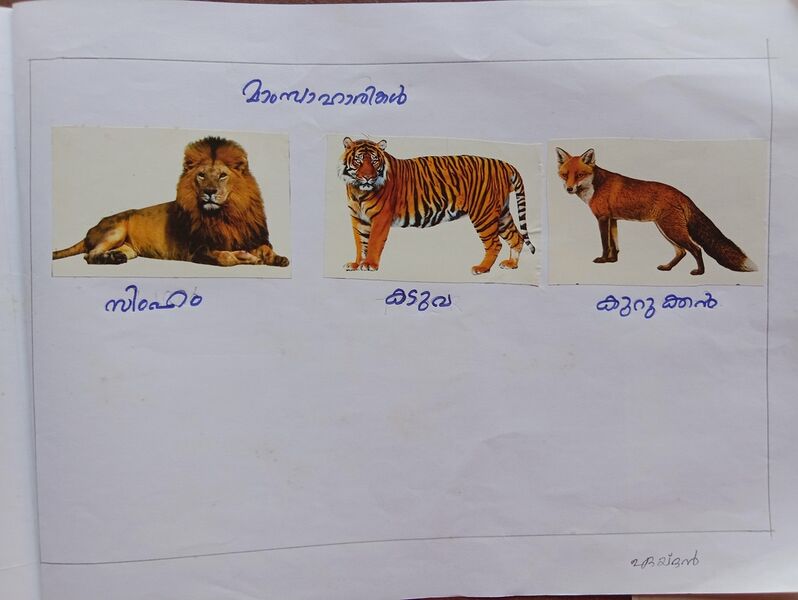 മാംസാഹാരികൾ
സിംഹം
കടുവ
കുറുക്കൻ